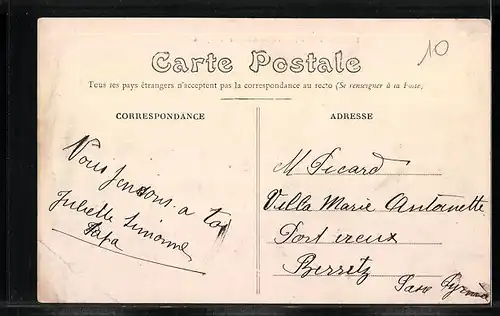 10
Carte Postale
Tous les pays étrangers n'acceptent pas la correspondance au recto (Se renseigner à la Poste)
CORRESPONDANCE
ADRESSE
Vous pensons a toi
Juliette Simonne
Papa
M Picard
Villa Marie Antoinette
Port vieux
Berretz